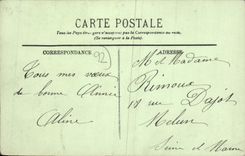 CARTE POSTALE
Tous les Pays étrangers n'acceptent pas la Correspondance au recto.
(Se renseigner à la Poste)
CORRESPONDANCE
92
ADRESSE
Tous mes vœux
de bonne Année
Aline
M et Madame
Rimoux
18 rue Dajot
Melun
Seine et Marne